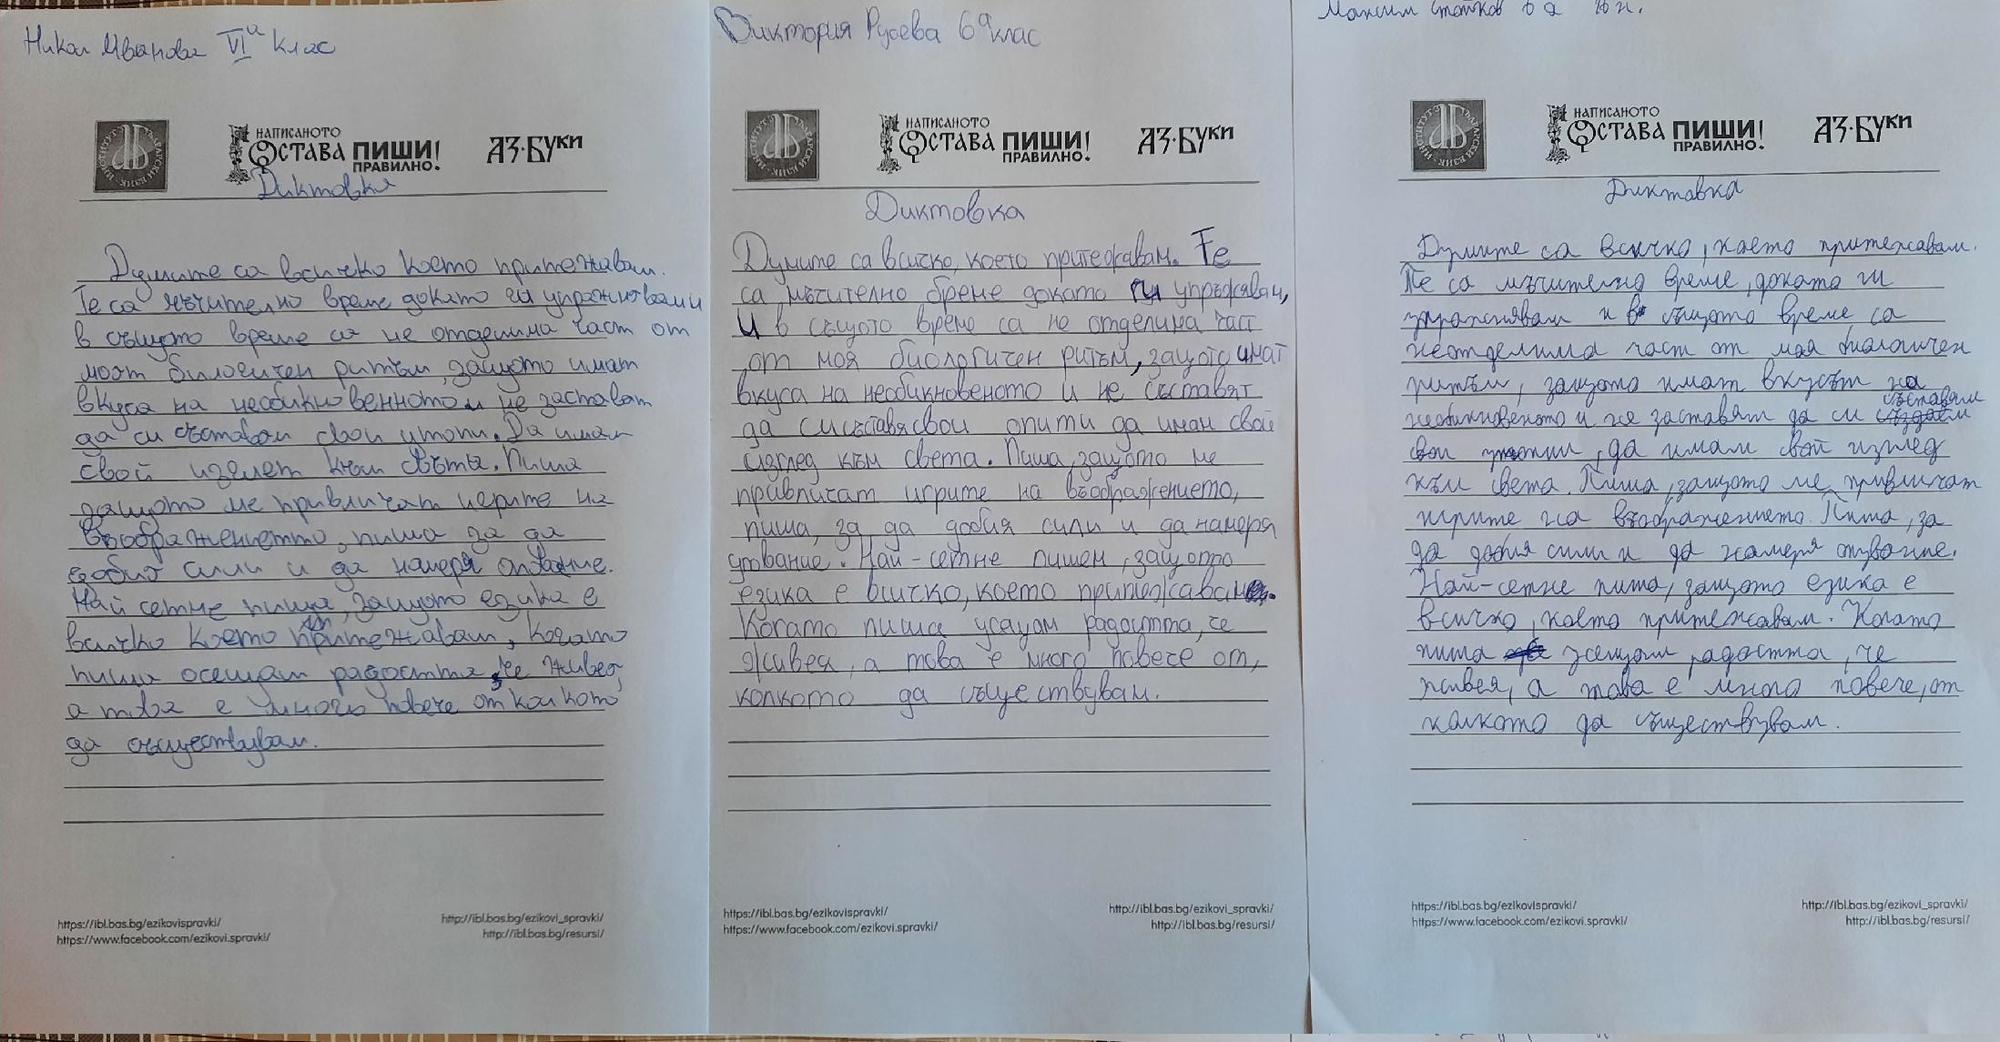 Никол Иванова VIа клас
НАПИСАНОТО
ОСТАВА ПИШИ!
ПРАВИЛНО!
АЗ·БУКИ
Диктовка
Думите са всичко което притежавам.
Те са мъчително време докато ги упражнявам и
в същото време са не отделима част от
моят билогичен ритъм, защото имат
вкуса на необикновенното и не застават
да си съставам свои утопи. Да имам
свой изглет към светъ. Пиша
защото ме привличат игрите на
въображениетто, пиша за да
добит сили и да намеря опование.
Най сетне пиша, защото езика е
всичко което притежавам, когато
пиша осещам радостта, че живея,
а това е много повече от колкото
да съществувам.
https://ibl.bas.bg/ezikovispravki/
https://www.facebook.com/ezikovi.spravki/
http://ibl.bas.bg/ezikovi_spravki/
http://ibl.bas.bg/resursi/
Виктория Русева 6а клас
НАПИСАНОТО
ОСТАВА ПИШИ!
ПРАВИЛНО!
АЗ·БУКИ
Диктовка
Думите са всичко, което притежавам. Те
са мъчително бреме докато ги упръжявам,
и в същото време са не отделима част
от моя биологичен ритъм, защото имат
вкуса на необикновеното и не съставят
да си съставя свои опити да имам свой
изглед към света. Пиша, защото ме
привличат игрите на въображението,
пиша, за да добия сили и да намеря
упование. Най-сетне пишем, защото
езика е всичко, което притежавам.
Когато пиша усещам радостта, че
живея, а това е много повече от,
колкото да съществувам.
https://ibl.bas.bg/ezikovispravki/
https://www.facebook.com/ezikovi.spravki/
http://ibl.bas.bg/ezikovi_spravki/
http://ibl.bas.bg/resursi/
Максим 6 а
НАПИСАНОТО
ОСТАВА ПИШИ!
ПРАВИЛНО!
АЗ·БУКИ
Диктовка
Думите са всичко, което притежавам.
Те са мъчително време, доката ги
упражнявам и в същото време са
неотделима част от моя биологичен
ритъм, защото имат вкусът на
необикновеното и ме заставят да си създам съставям
свои утопии, да имам свой изглед
към света. Пиша, защото ме привличат
игрите на въображението. Пиша, за
да добия сили и да намеря опование.
Най-сетне пиша, защото езика е
всичко, което притежавам. Когато
пиша усещам радостта, че
живея, а това е много повече, от
колкото да съществувам.
https://ibl.bas.bg/ezikovispravki/
https://www.facebook.com/ezikovi.spravki/
http://ibl.bas.bg/ezikovi_spravki/
http://ibl.bas.bg/resursi/